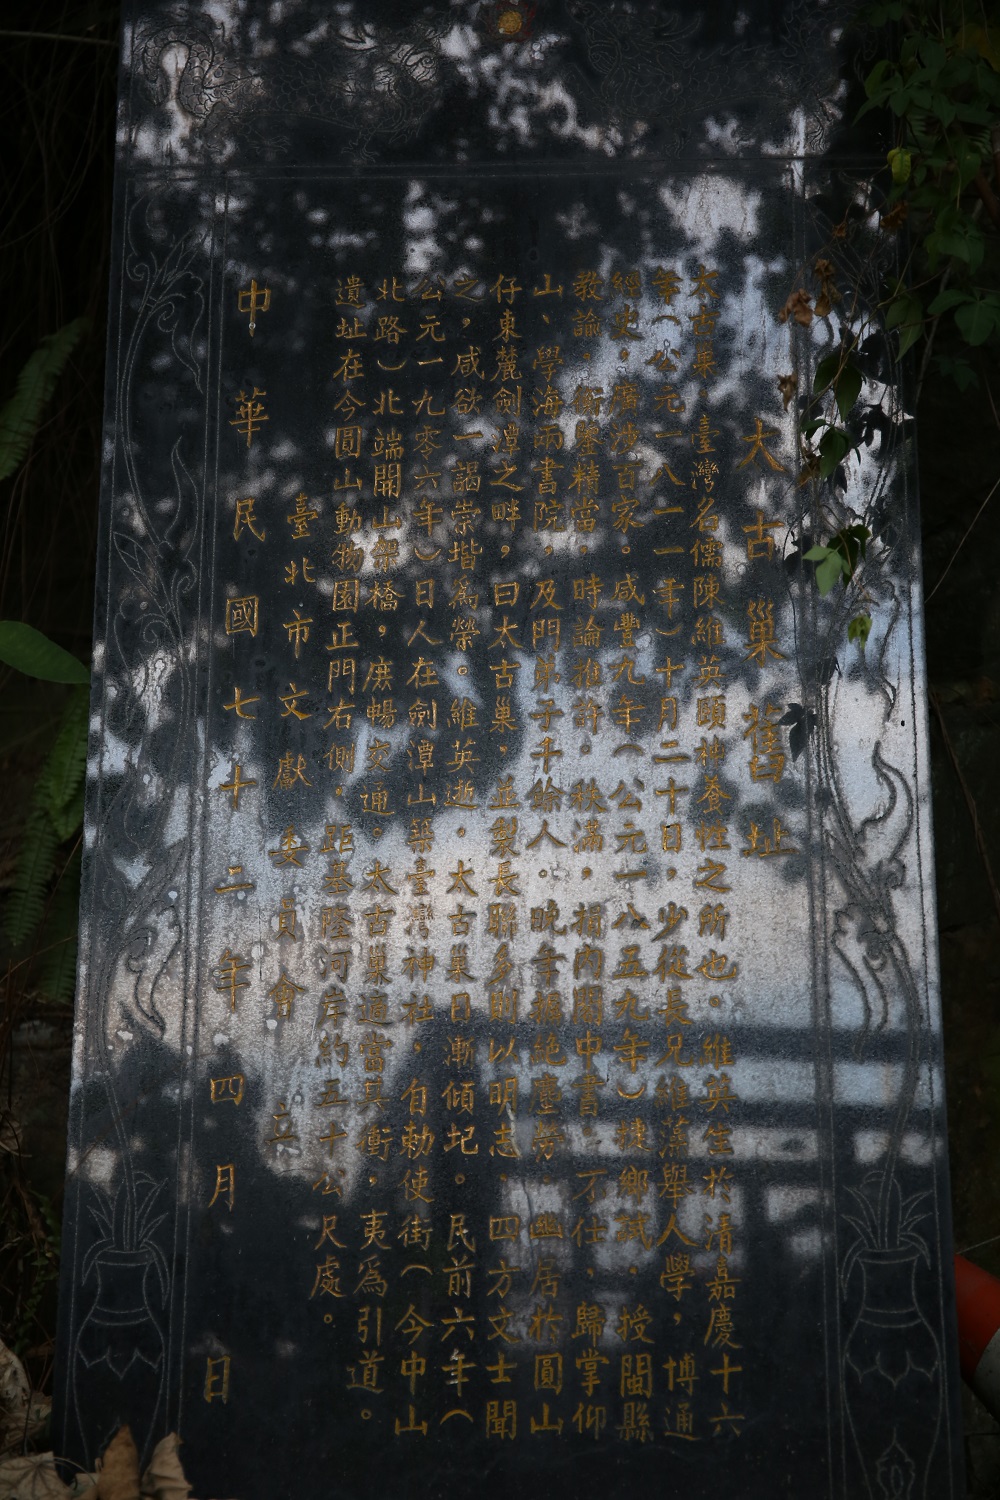 太古巢舊址
太古巢，臺灣名儒陳維英頤神養性之所也。維英生於清嘉慶十六
年（公元一八一一年）十月二十日，少從長兄維藻舉人學，博通
經史，廣涉百家。咸豐九年（公元一八五九年）捷鄉試。授閩縣
教諭。衡鑒精當，時論推許。秩滿，捐內閣中書，不仕，歸掌仰
山、學海兩書院，及門弟子千餘人。晚年擺絕塵勞。幽居於圓山
仔東麓劍潭之畔，曰太古巢，並製長聯多則以明志，四方文士聞
之，咸欲一謁崇堦為榮。維英逝，太古巢日漸傾圮。民前六年（
公元一九零六年）日人在劍潭山築臺灣神社，自勅使街（今中山
北路）北端開山架橋，庶暢交通。太古巢適當其衝，夷為引道。
遺址在今圓山動物園正門右側，距基隆河岸約五十公尺處。
臺北市文獻委員會 立
中華民國七十二年四月 日